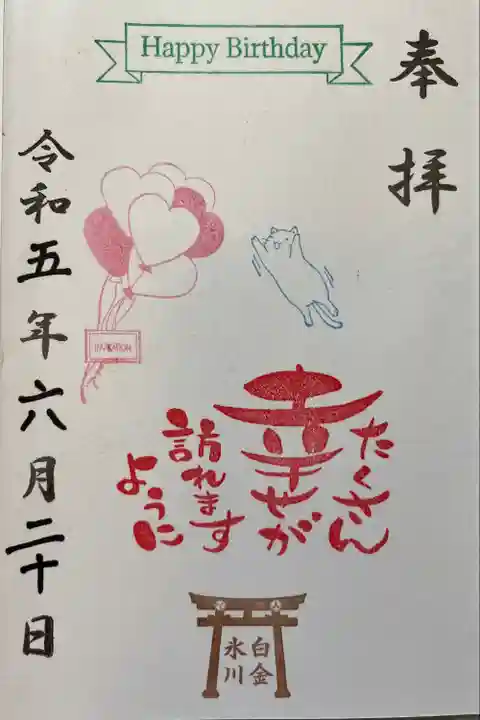 Happy Birthday
奉拝
たくさん
幸せが
訪れます
ように
INVITATION
白金
氷川
令和五年六月二十日